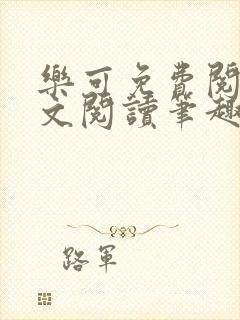 樂可免費閱
文閱讀筆趣
路軍